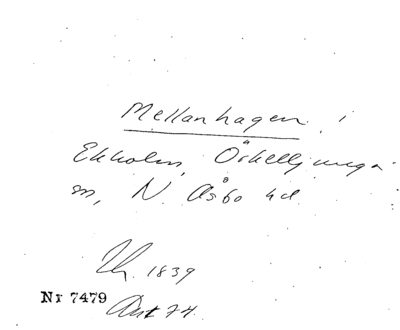 Mellanhagen i
Ekholm, Örkelljunga
sn, N. Åsbo hd
Uh. 1839
Nr 7479
Ant 74.